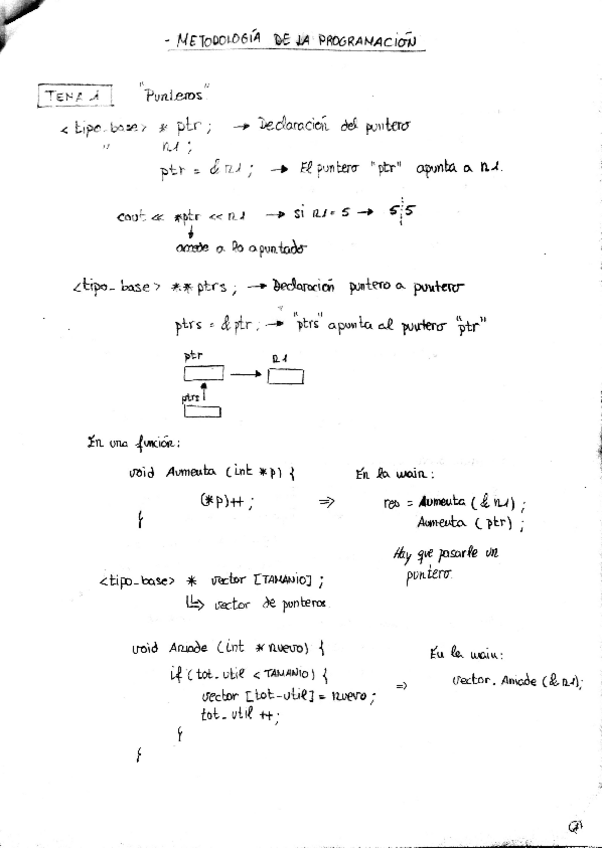 - METODOLOGÍA DE LA PROGRAMACIÓN
TEMA 1 "Punteros"
<tipo_base> * ptr ; → Declaración del puntero
" n1 ;
ptr = & n1 ; → El puntero "ptr" apunta a n1.
cout << *ptr << n1 → si n1 = 5 → 5 5
accede a lo apuntado
<tipo_base> ** ptrs ; → Declaración puntero a puntero
ptrs = & ptr ; → "ptrs" apunta al puntero "ptr"
ptr → n1
ptrs
En una función:
void Aumenta (int *p) { En la main:
(*p)++ ; ⇒ res = Aumenta (& n1) ;
} Aumenta (ptr) ;
Hay que pasarle un
puntero.
<tipo_base> * vector [TAMANIO] ;
↳ vector de punteros.
void Aniade (int *nuevo) { En la main:
if (tot_util < TAMANIO) { ⇒ vector. Aniade (& n1);
vector [tot_util] = nuevo ;
tot_util ++ ;
}
}